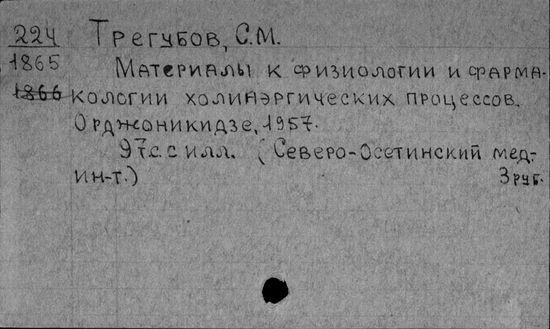 224 Трегубов, С.М.
1865 Материалы к физиологии и фарма-
1866 кологии холинэргических процессов.
Орджоникидзе, 1957.
97с. с илл. (Северо-Осетинский мед.
ин-т.) 3 руб.